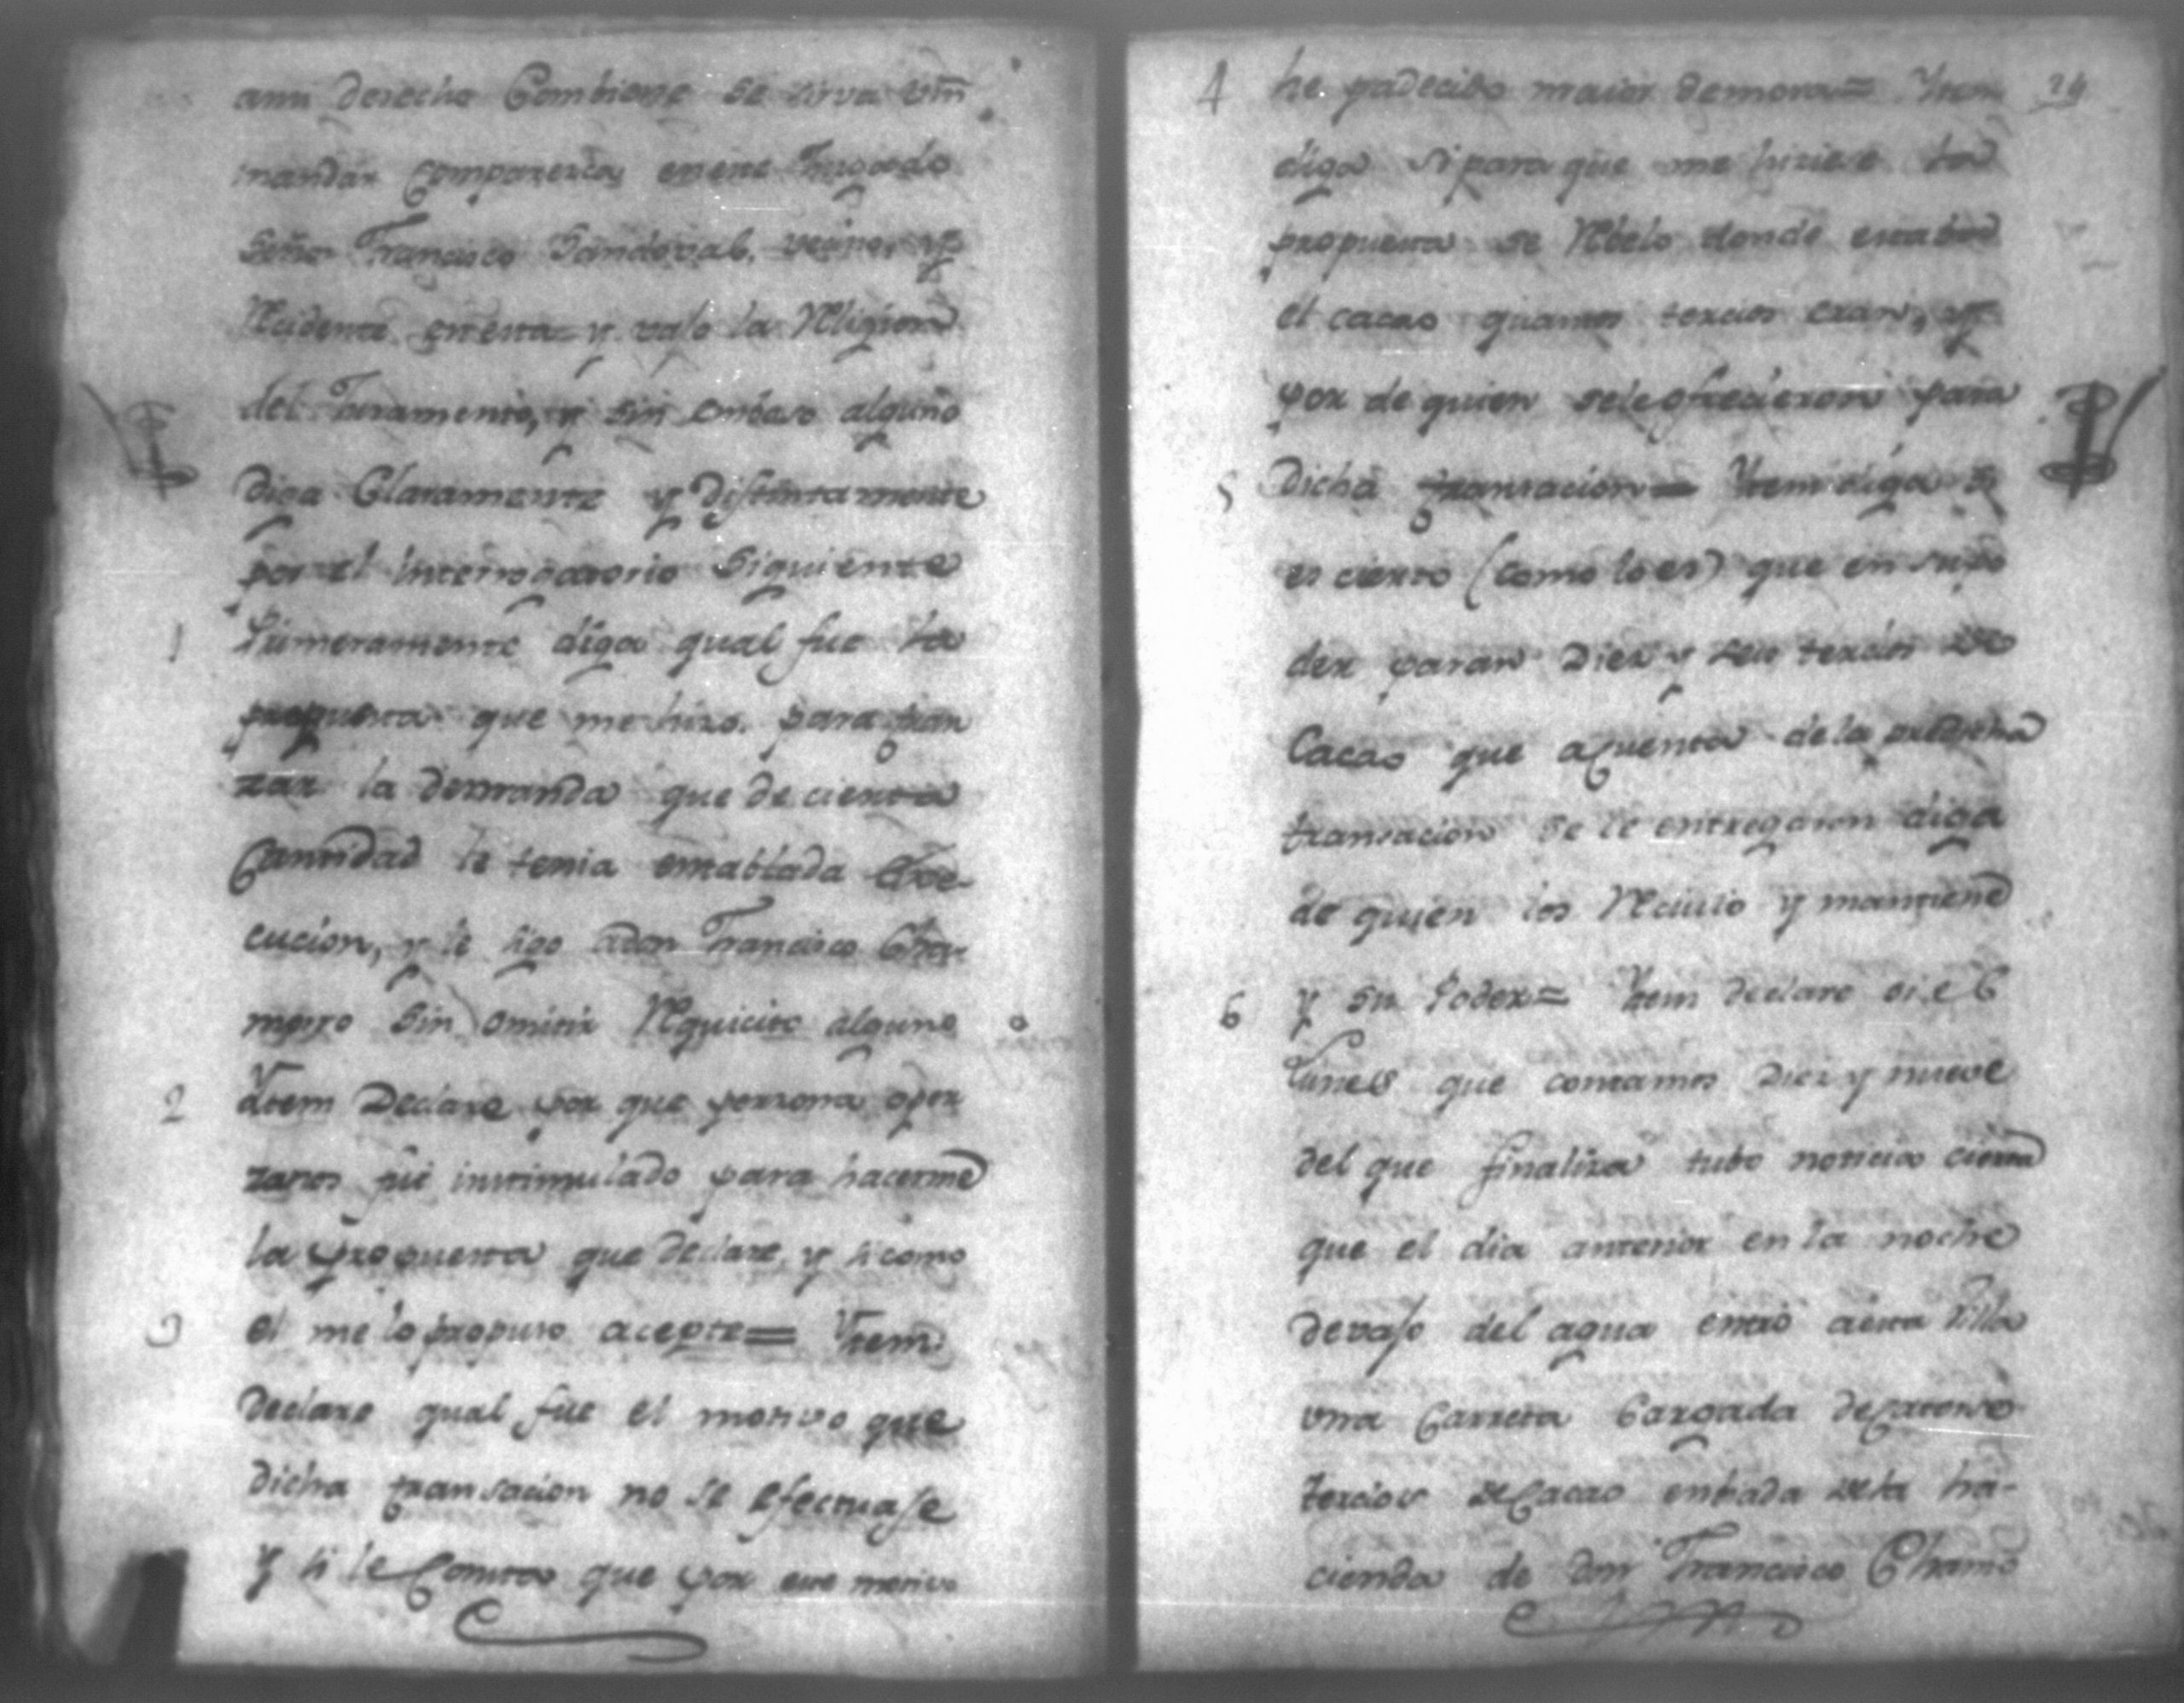 ami derecho Combiene se sirva Vm̃
mandar Comparezca, en este Juzgado
Señor Francisco Sandoval. vecino, y
Recidente en esta y vajo la Religion
del Juramento, y sin embaso alguno
diga Claramente y distintamente
por el interrogatorio Siguiente
1 Primeramente diga qual fue la
propuesta que me hizo. para tran
zar la demanda que de cierta
Cantidad le tenia entablada Exe-
cucion, y le sigo a don Francisco Cha-
morro sin omitir Requicito alguno
2 Ytem Declare por que persona o per
zonas fué instimulado para hacerme
la propuesta que declare, y si como
3 el me lo propuso acepte = Ytem
declare qual fue el motivo que
dicha transacion no se efectuase
y si le Consta que por ese motivo
4 he padecido maior demora = Ytem 24
diga si para que me hiziese la
propuesta se Rbelo donde estaba
el cacao quantos tercios eran, y
por de quien sele ofrecieron para
5 Dicha transacion = Ytem diga si
es cierto (como lo es) que en su po
der paran Diez y seis tercios de
Cacao que a Cuenta de la predicha
transacion se le entregaron diga
de quien los Recivio y mantiene
6 y su Poder = Ytem declare si el
Lunes que contamos Diez y nueve
del que finaliza tubo noticia cierta
que el dia anterior en la noche
devajo del agua entró aésta Villa
una Carreta Cargada de Catorse
tercios de Cacao embiada de la ha-
cienda de don Francisco Chamo